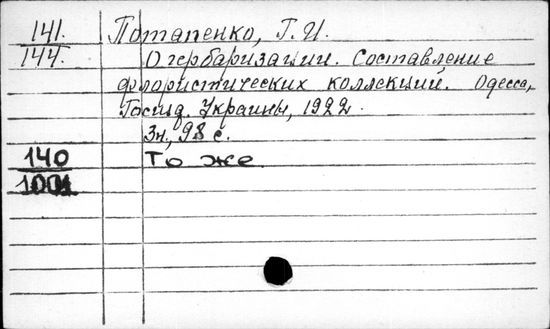 141. Потапенко, Г. И.
144. О гербаризации. Составление
флористических коллекций. Одесса,
Госизд. Украины, 1922.
Зн., 98 с.
140 То же
1001